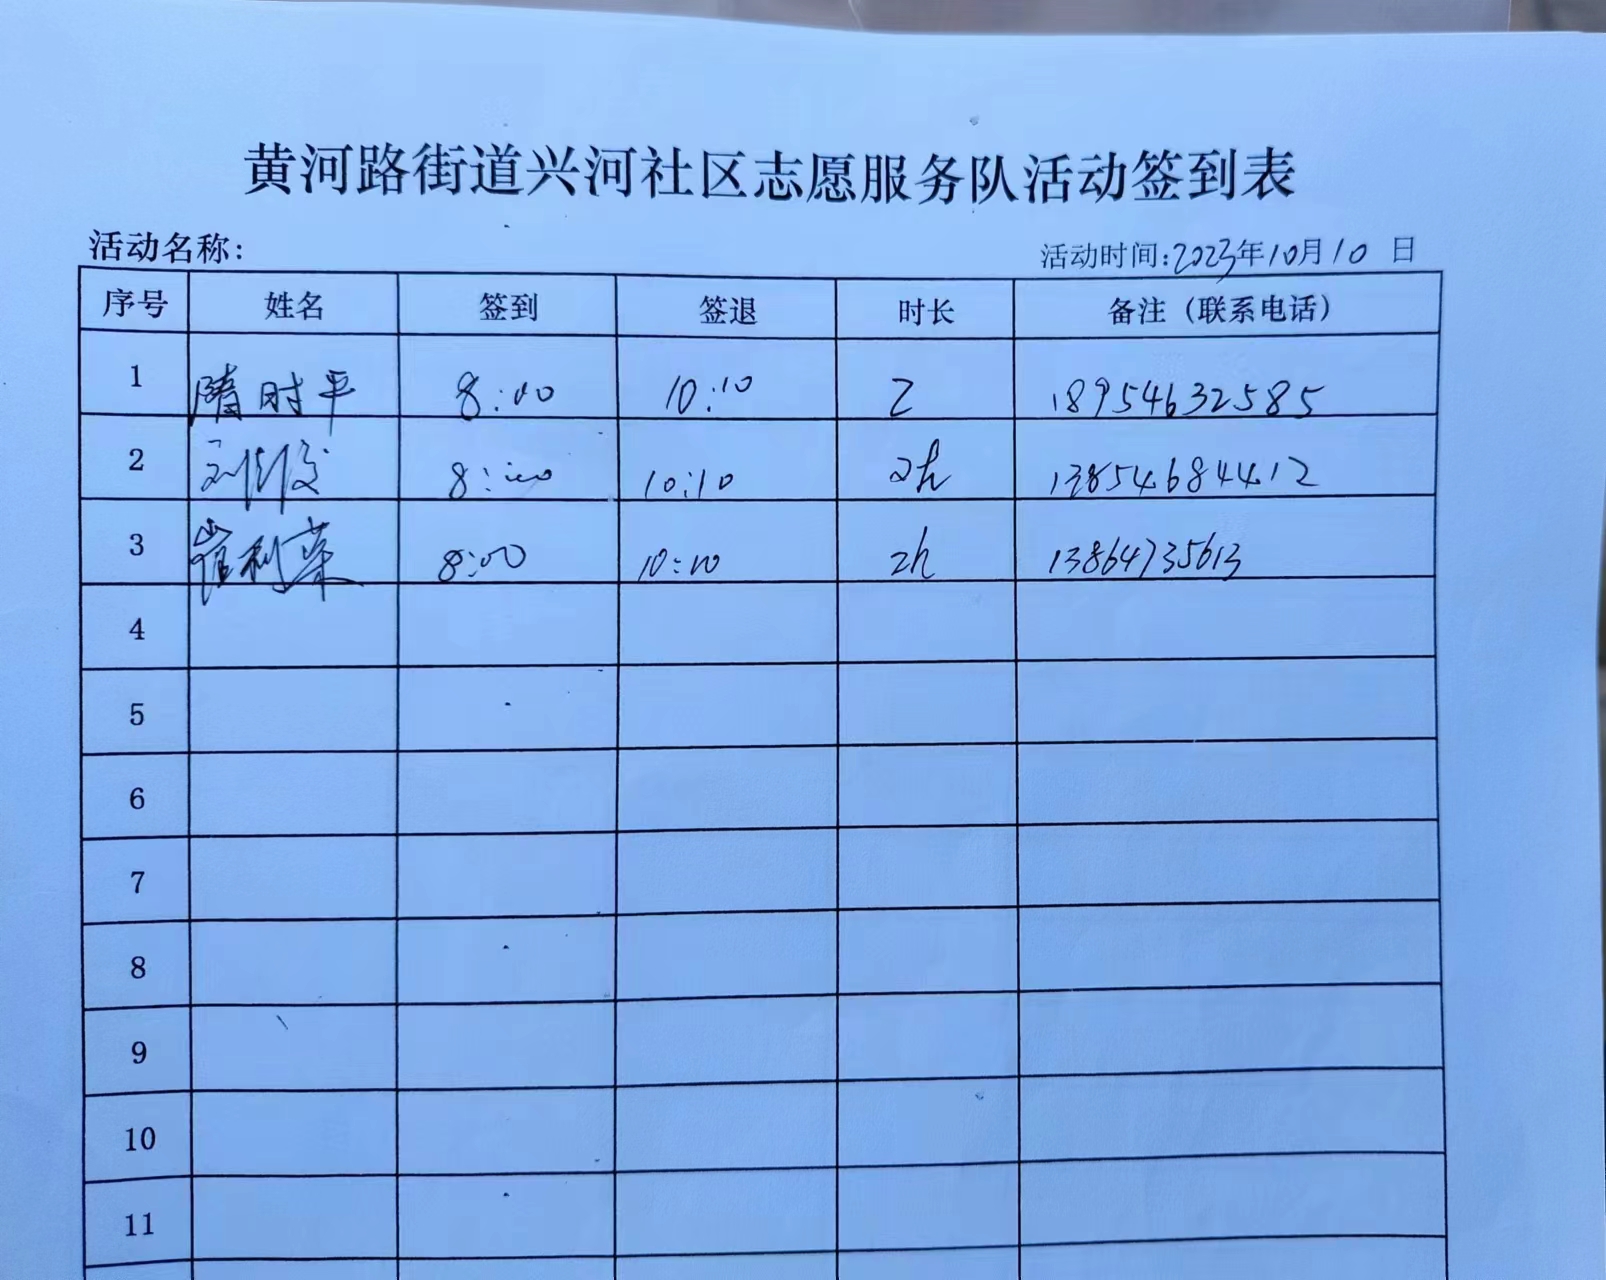 黄河路街道兴河社区志愿服务队活动签到表
活动名称: 活动时间:2023年10月10日
序号 姓名 签到 签退 时长 备注（联系电话）
1 隋时平 8:00 10:10 2 18954632585
2 8:00 10:10 2h 13854684412
3 崔利荣 8:00 10:10 2h 13864735613
4
5
6
7
8
9
10
11